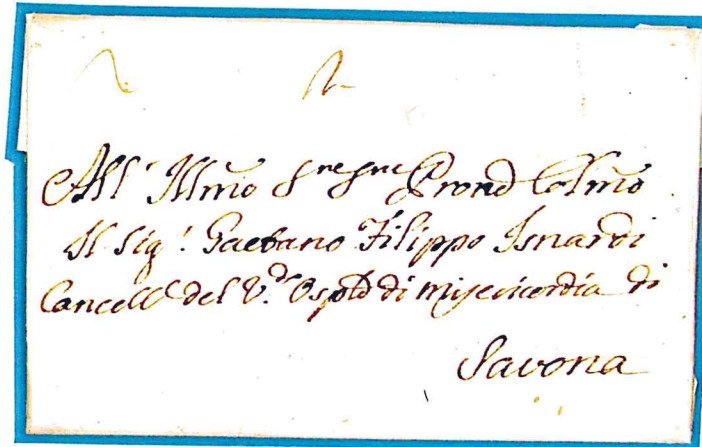 All' Illmo Sre Sre Prond Colmo
Il Sigr. Gaetano Filippo Isnardi
Cancell del V.do Ospld di misericordia di
Savona